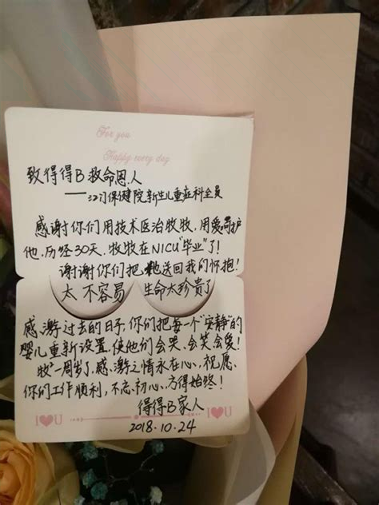 For you
Happy every day
致得得B救命恩人
保健院新生儿重症科全员
感谢你们用技术医治牧牧,用爱
他,历经30天,牧牧在NICU"毕业"了!
谢谢你们把他送回我们怀抱!
太不容易 生命太珍贵了
感谢过去的日子,你们把每一个"安静"的
婴儿重新设置,使他们会哭、会笑会
牧一周岁了,感谢之情永在心,祝愿
你们工作顺利,不忘初心、方得始终!
得得B家人
2018.10.24
I♥U
I♥U